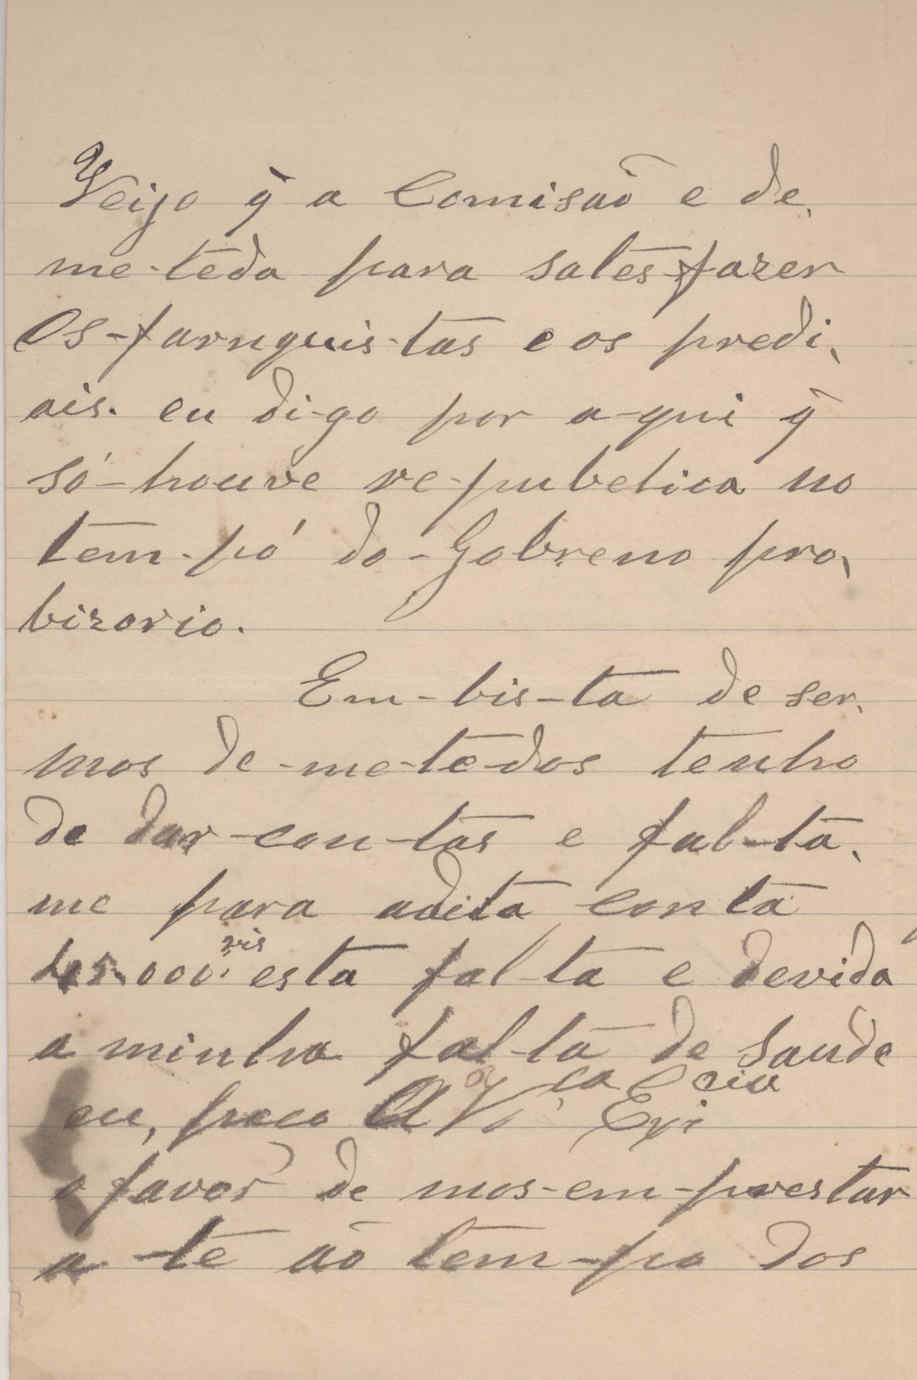 Veijo q̃ a Comisaõ e de,
me-teda para sates-fazer
Os-farnquis-tas e os predi,
ais. eu di-go por a-qui q̃
só-houve re-pubelica no
tem-pó do-Gobreno pro,
bizorio.
Em-bis-ta de ser,
mos de-me-te-dos tenho
de dar-con-tas e fal-ta,
me para adita conta
45.000 reis esta fal-ta e devida
a minha fal-ta de saude
eu, peco a V.ª Ex.ca
o favor de mos-em-prestar
a-te ao tem-po dos